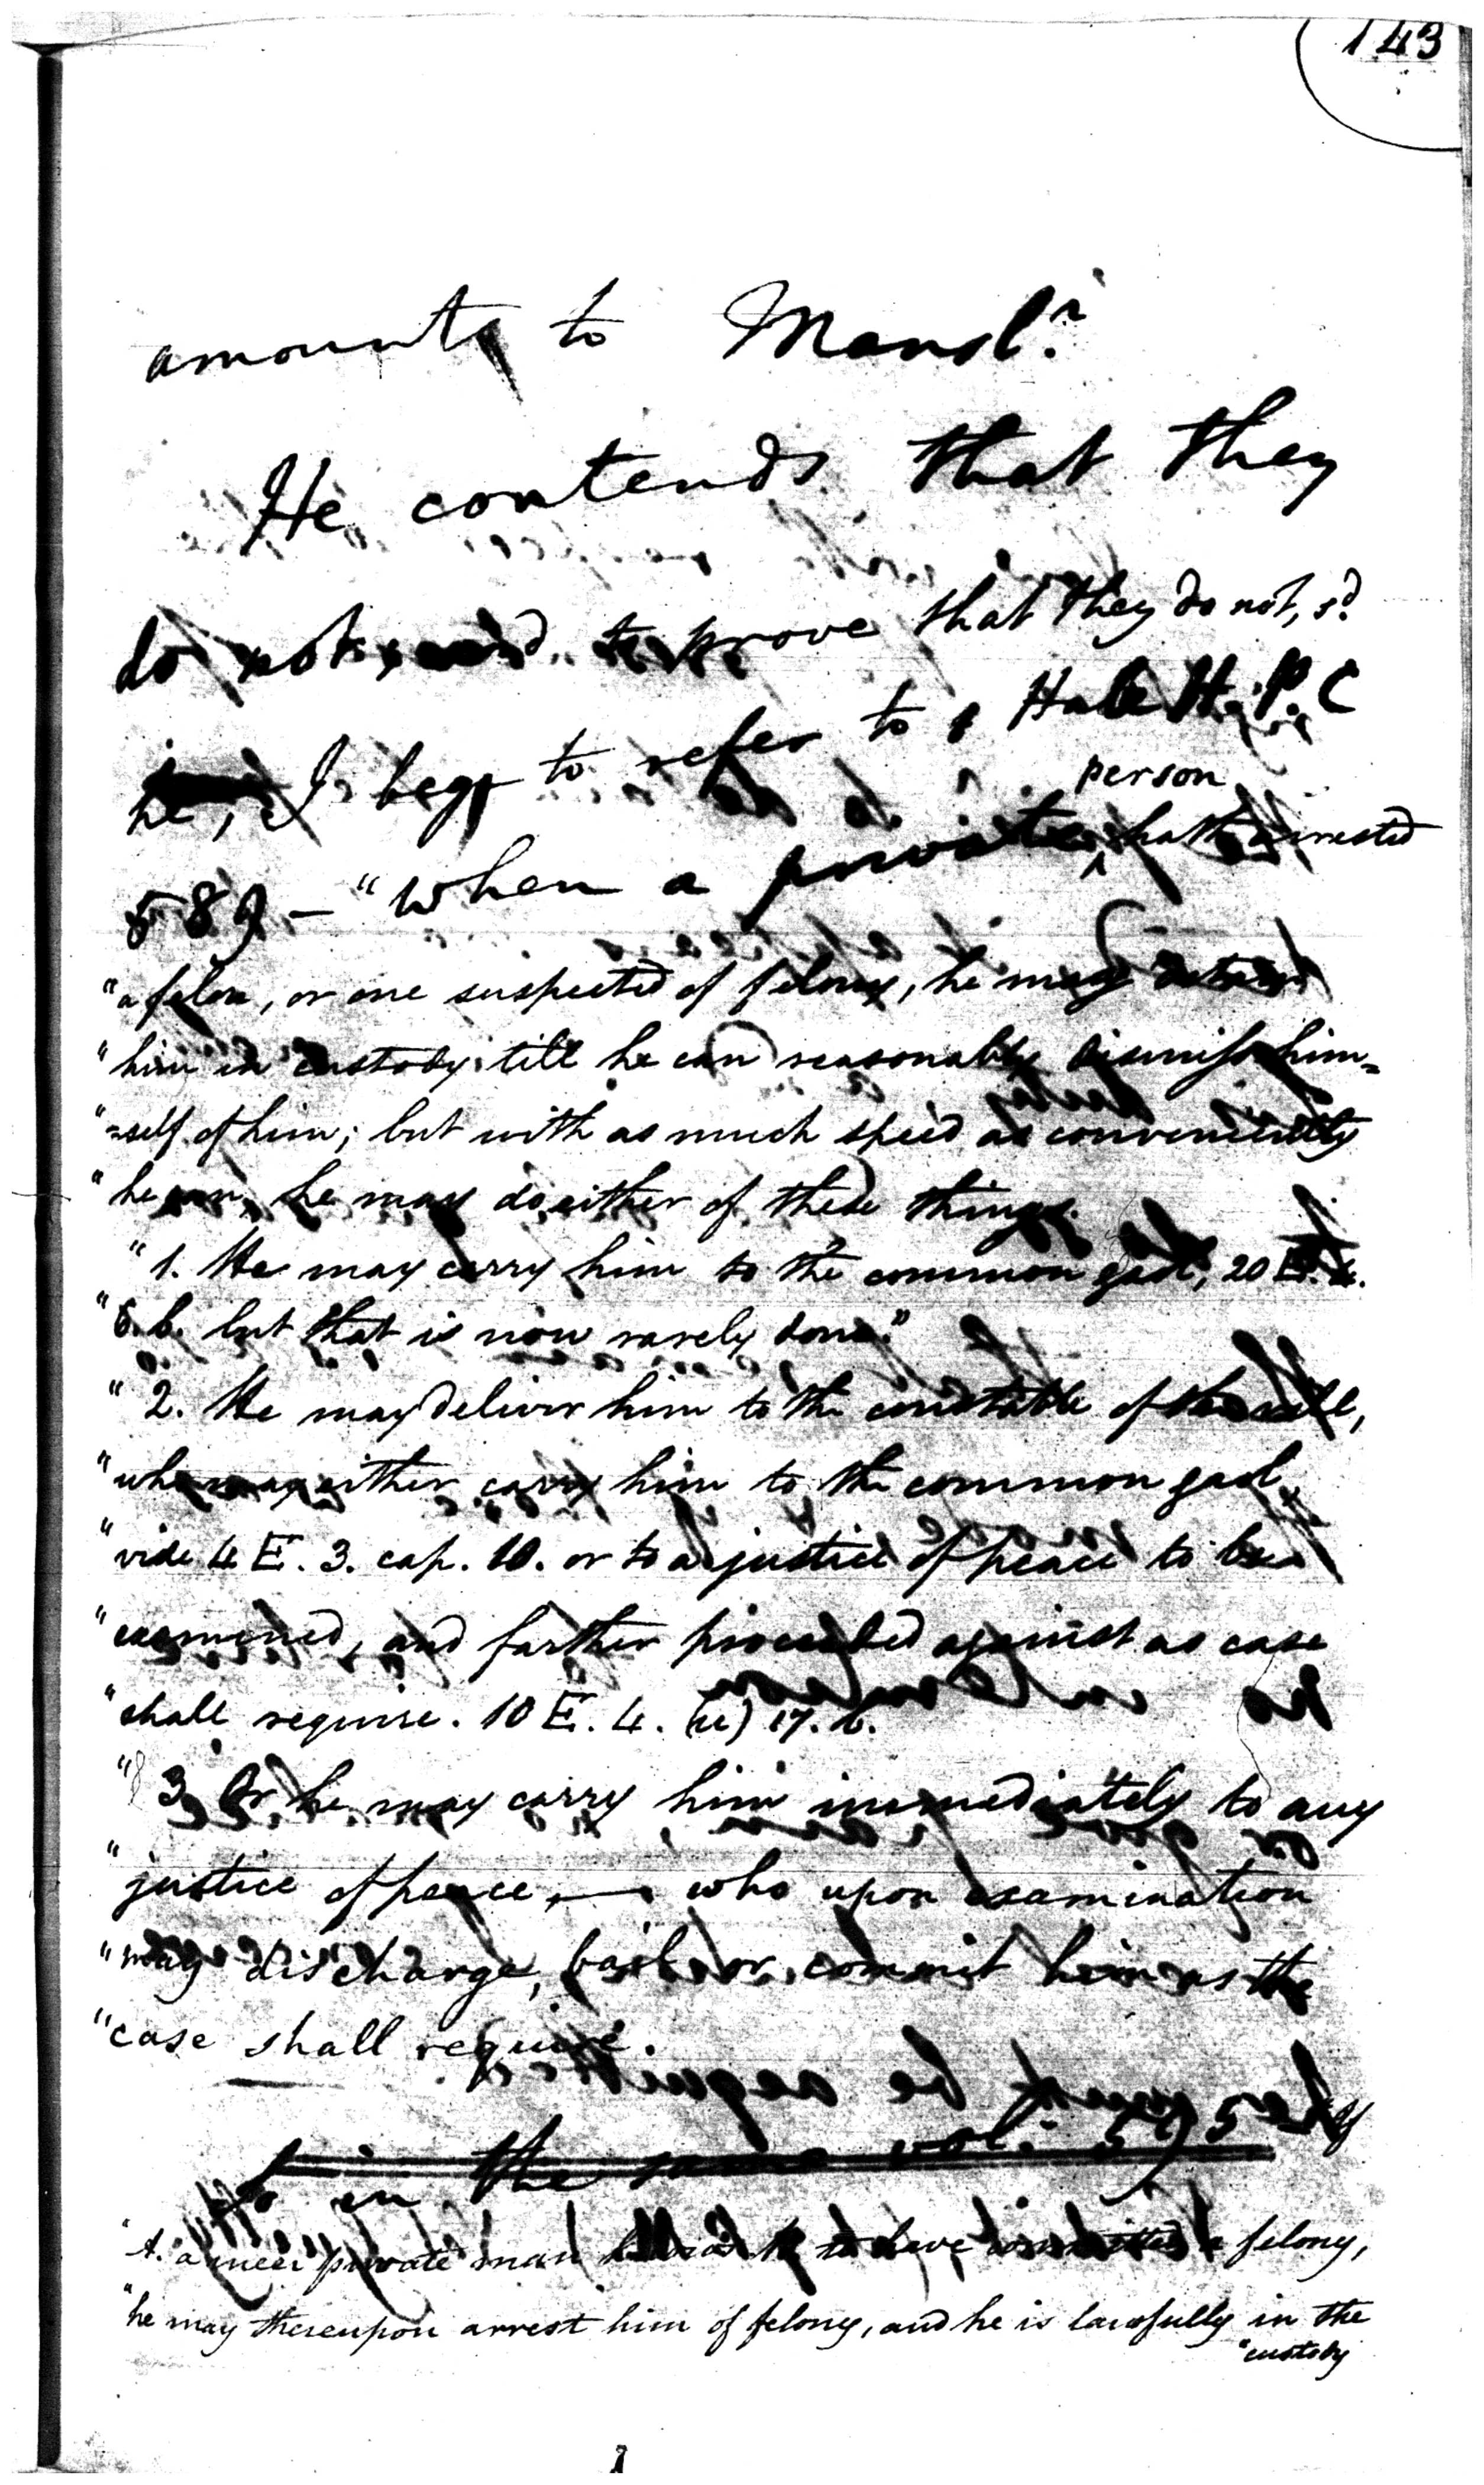 143
amounts to Mansl:r
He contends that they
do not, to prove that they do not, sd.
he, I beg to refer to 1 Hale H. P. C
person
589 — "When a private hath arrested
"a felon, or one suspected of felony, he may detain
"him in custody till he can reasonably dismiss him=
"=self of him; but with as much speed as conveniently
"he can, he may do either of these things.
"1. He may carry him to the common gaol, 20 E. 4.
"6. b. but that is now rarely done."
"2. He may deliver him to the constable of the vill,
"who may either carry him to the common gaol,
"vide 4 E. 3. cap. 10. or to a justice of peace to be
"examined, and farther proceeded against as case
"shall require. 10 E. 4. 17. b.
"3. Or he may carry him immediately to any
"justice of peace, — who upon examination
"may discharge, bail or commit him as the
"case shall require.
in the same vol: 595
"A. a meer private man to have committed a felony,
"he may thereupon arrest him of felony, and he is lawfully in the
"custody